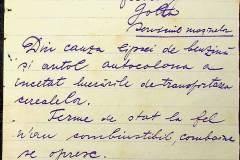 Golta
Serviciul mașinelor
Din cauza lipsei de benzină
și autol autocolona a
incetat lucrările de transportarea
cerealelor.
Ferme de stat la fel
n'au combustibil, combaine
se opresc.